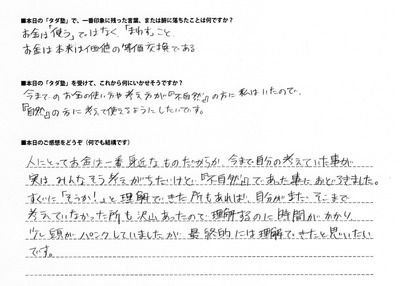 ■本日の「タダ塾」で、一番印象に残った言葉、または腑に落ちたことは何ですか？
お金は「使う」ではなく「まわす」こと。
お金は本来は価値の等価交換である。
■本日の「タダ塾」を受けて、これから何にいかせそうですか？
今までのお金の使い方や考え方が『不自然』の方に私はいたので、
『自然』の方に考えて使えるようにしたいです。
■本日のご感想をどうぞ（何でも結構です）
人にとってお金は一番身近なものだからか、今まで自分の考えていた事が
実はみんなそう考えがちだけど、『不自然』であった事におどろきました。
すぐに「そうか！」と理解できた所もあれば、自分がまだそこまで
考えていなかった所も沢山あったので理解するのに時間がかかり
少し頭がパンクしていましたが、最終的には理解できたと思いたい
です。